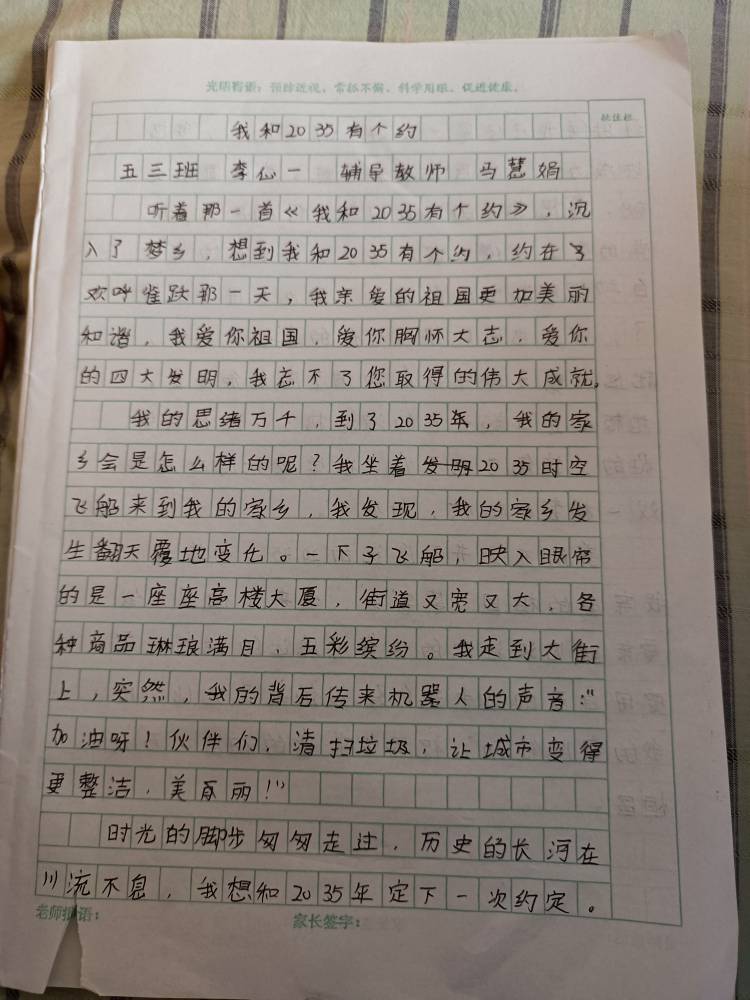 光明智语：预防近视，常抓不懈，科学用眼，促进健康。
我和2035有个约
五三班 李仁一 辅导教师 马慧娟
听着那一首《我和2035有个约》，沉
入了梦乡，想到我和2035有个约，约在了
欢呼雀跃那一天，我亲爱的祖国更加美丽
和谐，我爱你祖国，爱你胸怀大志，爱你
的四大发明，我忘不了您取得的伟大成就。
我的思绪万千，到了2035年，我的家
乡会是怎么样的呢？我坐着发明2035时空
飞船来到我的家乡，我发现，我的家乡发
生翻天覆地变化。一下子飞船，映入眼帘
的是一座座高楼大厦，街道又宽又大，各
种商品琳琅满目，五彩缤纷。我走到大街
上，突然，我的背后传来机器人的声音：“
加油呀！伙伴们，清扫垃圾，让城市变得
更整洁，美百丽！”
时光的脚步匆匆走过，历史的长河在
川流不息，我想和2035年定下一次约定。
老师批语： 家长签字：